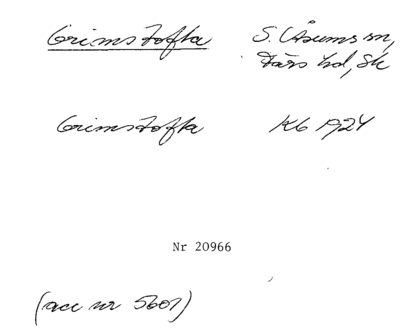 Grimstofta S. Åsums sn,
Färs hd, Sk
Grimstofta Kb 1924
Nr 20966
(acc nr 5601)